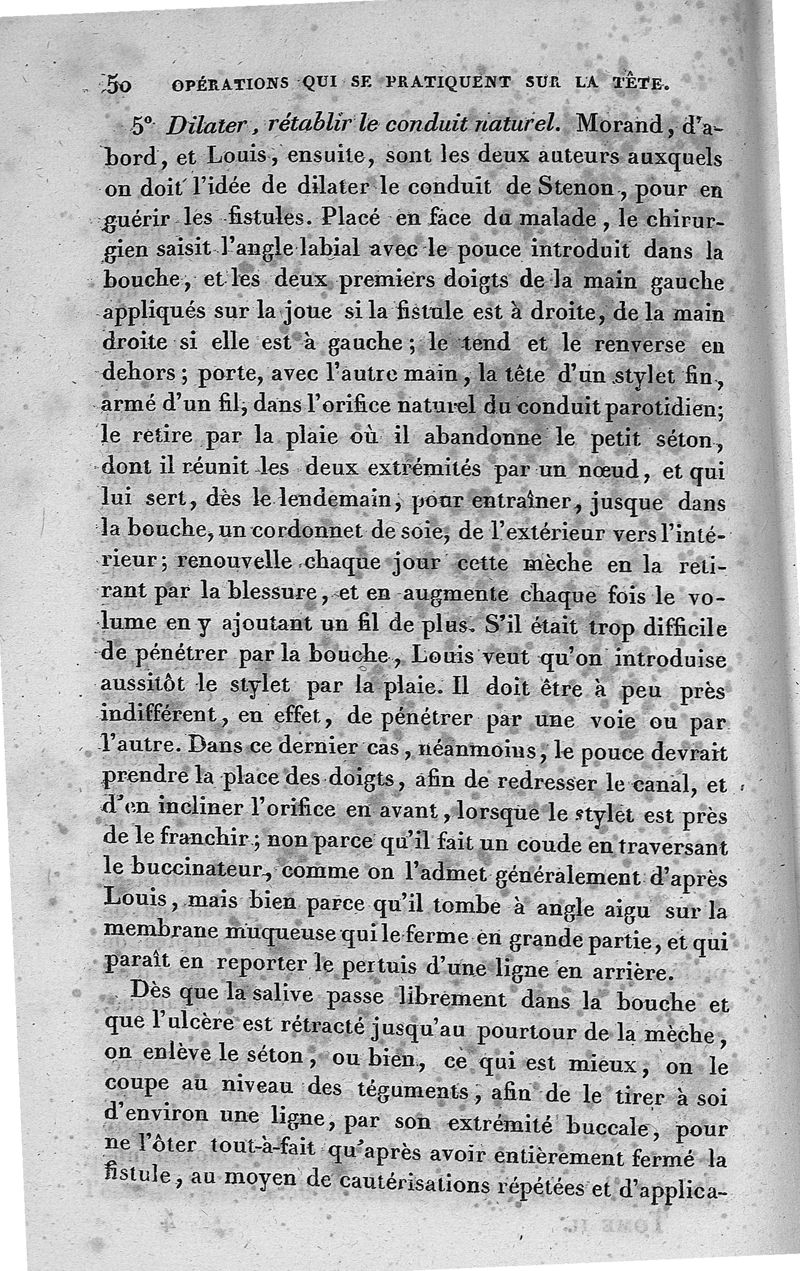 50 OPÉRATIONS QUI SE PRATIQUENT SUR LA TÊTE.
5° Dilater, rétablir le conduit naturel. Morand, d'a-
bord, et Louis, ensuite, sont les deux auteurs auxquels
on doit l'idée de dilater le conduit de Stenon, pour en
guérir les fistules. Placé en face du malade, le chirur-
gien saisit l'angle labial avec le pouce introduit dans la
bouche, et les deux premiers doigts de la main gauche
appliqués sur la joue si la fistule est à droite, de la main
droite si elle est à gauche; le tend et le renverse en
dehors; porte, avec l'autre main, la tête d'un stylet fin,
armé d'un fil, dans l'orifice naturel du conduit parotidien;
le retire par la plaie où il abandonne le petit séton,
dont il réunit les deux extrémités par un nœud, et qui
lui sert, dès le lendemain, pour entraîner, jusque dans
la bouche, un cordonnet de soie, de l'extérieur vers l'inté-
rieur; renouvelle chaque jour cette mèche en la reti-
rant par la blessure, et en augmente chaque fois le vo-
lume en y ajoutant un fil de plus. S'il était trop difficile
de pénétrer par la bouche, Louis veut qu'on introduise
aussitôt le stylet par la plaie. Il doit être à peu près
indifférent, en effet, de pénétrer par une voie ou par
l'autre. Dans ce dernier cas, néanmoins, le pouce devrait
prendre la place des doigts, afin de redresser le canal, et
d'en incliner l'orifice en avant, lorsque le stylet est près
de le franchir; non parce qu'il fait un coude en traversant
le buccinateur, comme on l'admet généralement d'après
Louis, mais bien parce qu'il tombe à angle aigu sur la
membrane muqueuse qui le ferme en grande partie, et qui
paraît en reporter le pertuis d'une ligne en arrière.
Dès que la salive passe librement dans la bouche et
que l'ulcère est rétracté jusqu'au pourtour de la mèche,
on enlève le séton, ou bien, ce qui est mieux, on le
coupe au niveau des téguments, afin de le tirer à soi
d'environ une ligne, par son extrémité buccale, pour
ne l'ôter tout-à-fait qu'après avoir entièrement fermé la
fistule, au moyen de cautérisations répétées et d'applica-